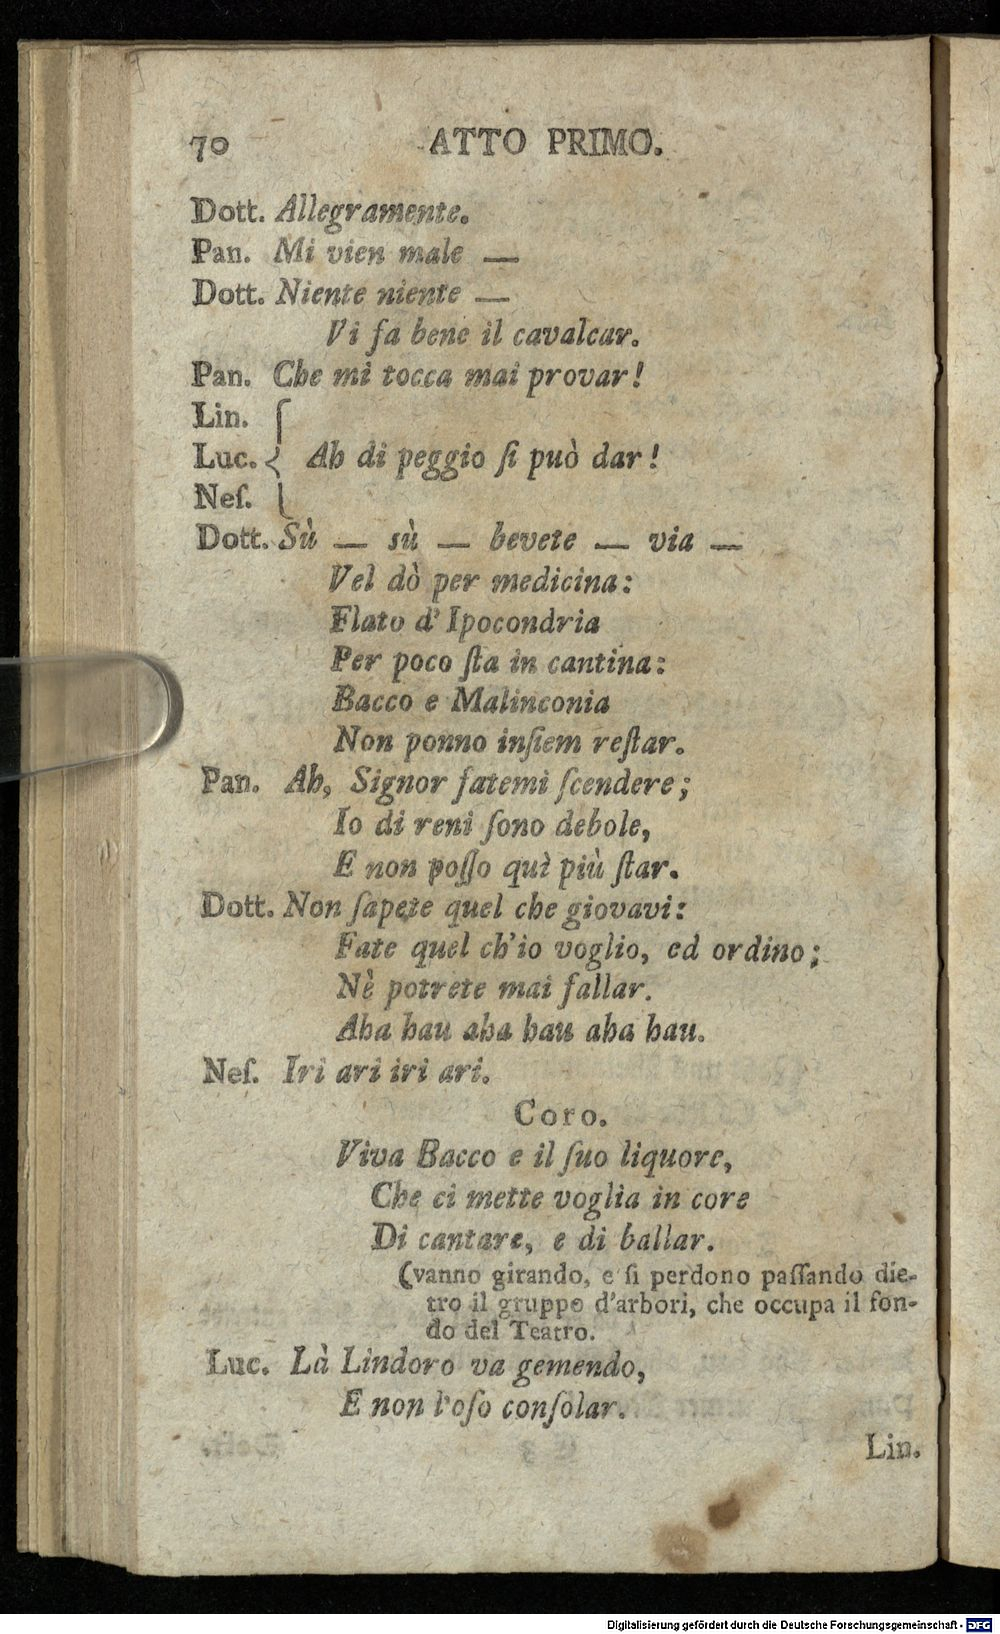 70 ATTO PRIMO.
Dott. Allegramente.
Pan. Mi vien male —
Dott. Niente niente —
Vi fa bene il cavalcar.
Pan. Che mi tocca mai provar!
Lin.
Luc. { Ah di peggio ſi può dar!
Neſ.
Dott. Sù — sù — bevete — via —
Vel dò per medicina:
Flato d' Ipocondria
Per poco ſta in cantina:
Bacco e Malinconia
Non ponno inſiem reſtar.
Pan. Ah, Signor fatemi ſcendere;
Io di reni ſono debole,
E non poſſo quì più ſtar.
Dott. Non ſapete quel che giovavi:
Fate quel ch'io voglio, ed ordino;
Nè potrete mai fallar.
Aha hau aha hau aha hau.
Neſ. Iri ari iri ari.
Coro.
Viva Bacco e il ſuo liquore,
Che ci mette voglia in core
Di cantare, e di ballar.
(vanno girando, e ſi perdono paſſando die-
tro il gruppo d'arbori, che occupa il fon-
do del Teatro.
Luc. Là Lindoro va gemendo,
E non l'oſo conſolar.
Lin.
Digitalisierung gefördert durch die Deutsche Forschungsgemeinschaft - DFG